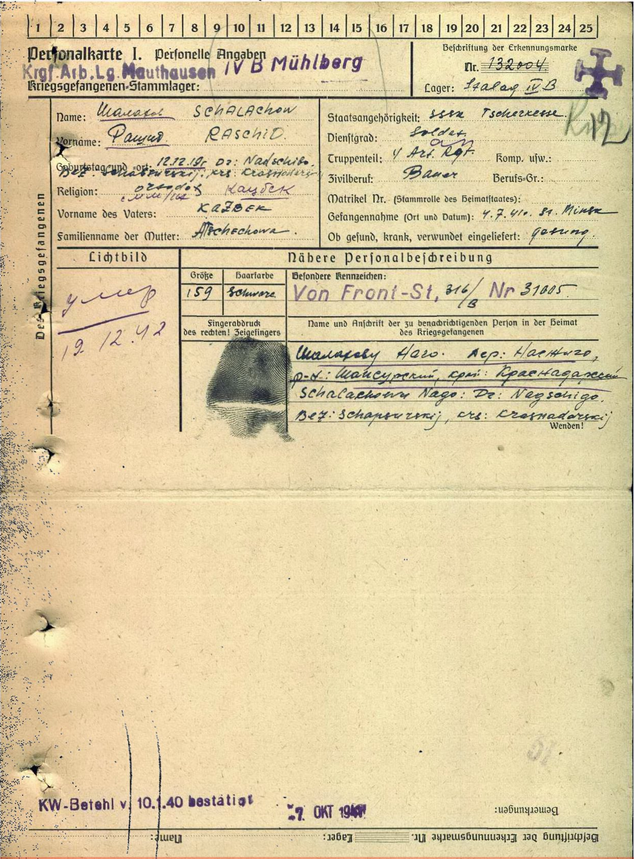 1 2 3 4 5 6 7 8 9 10 11 12 13 14 15 16 17 18 19 20 21 22 23 24 25
Personalkarte I. Personelle Angaben
Krgf.Arb.Lg. Mauthausen IV B Mühlberg
Kriegsgefangenen-Stammlager:
Beschriftung der Erkennungsmarke
Nr. 132004
Lager: Stalag IV B
Des Kriegsgefangenen
Name: Шалахов SCHALACHOW
Vorname: Рашид RASCHID.
Geburtstag und -ort: 12.12.19. Do: Nadschigo.
Religion:
Vorname des Vaters: KAZBEK
Familienname der Mutter:
Staatsangehörigkeit: SSSR Tscherkesse
Dienstgrad: Soldat
Truppenteil: 4 Art. Rgt. Komp. usw.:
Zivilberuf: Bauer Berufs-Gr.:
Matrikel Nr. (Stammrolle des Heimatstaates):
Gefangennahme (Ort und Datum): 4.7.41. Minsk
Ob gesund, krank, verwundet eingeliefert: gesund.
Lichtbild
умер
19.12.42
Nähere Personalbeschreibung
Größe Haarfarbe Besondere Kennzeichen:
159 schwarz Von Front-St, 316/B Nr 31005
Fingerabdruck
des rechten! Zeigefingers
Name und Anschrift der zu benachrichtigenden Person in der Heimat
des Kriegsgefangenen
Шалахову Наго. Дер: Наджиго,
р-н: Шапсурский, край: Краснадарский
Schalachowu Nago: Do: Nagschigo.
Bez: Schapsurskij, krs: Krasnadarskij
Wenden!
KW-Befehl v. 10.1.40 bestätigt
7. OKT 1941
Bemerkungen:
Beschriftung der Erkennungsmarke Nr.
Lager:
Name: